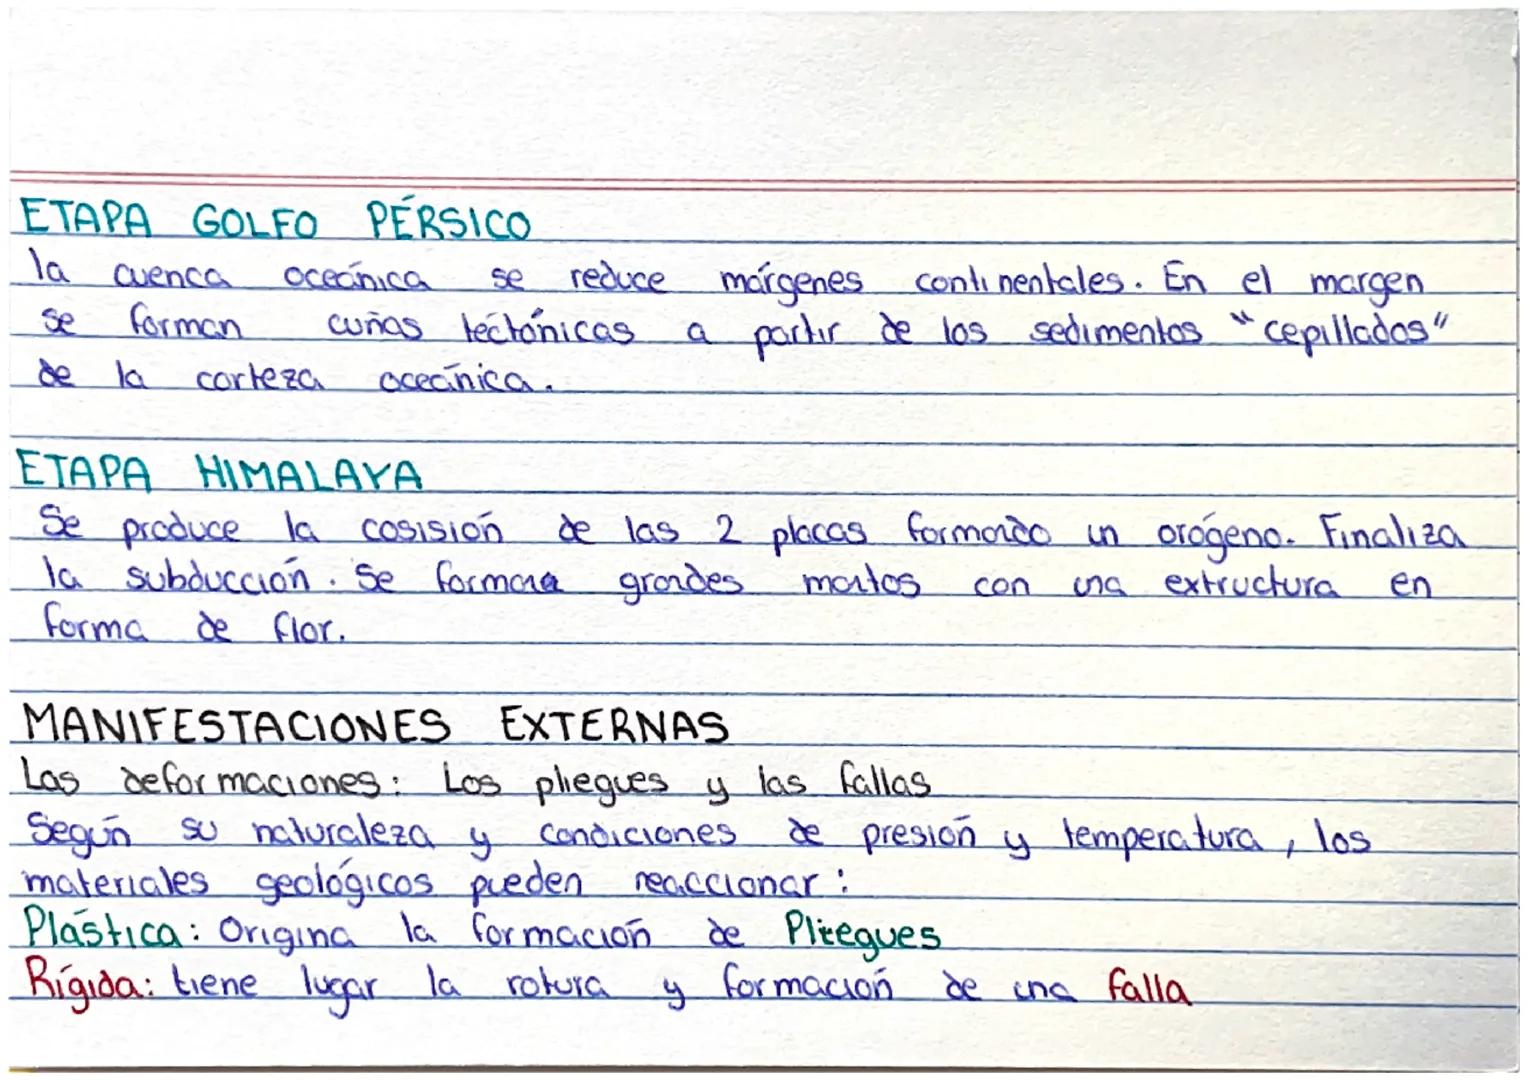 ETAPA GOLFO PÉRSICO
la cuenca oceánica se reduce márgenes continentales. En el margen
se forman cuñas tectónicas a partir de los sedimentos "cepillados"
de la corteza oceánica.
ETAPA HIMALAYA
Se produce la cosisión de las 2 placas formando un orógeno. Finaliza
la subducción. Se forman grandes montos con una extructura en
forma de flor.
MANIFESTACIONES EXTERNAS
Las deformaciones: Los pliegues y las fallas
Según su naturaleza y condiciones de presión y temperatura, los
materiales geológicos pueden reaccionar:
Plástica: Origina la formación de Pliegues
Rígida: tiene lugar la rotura y formación de una falla